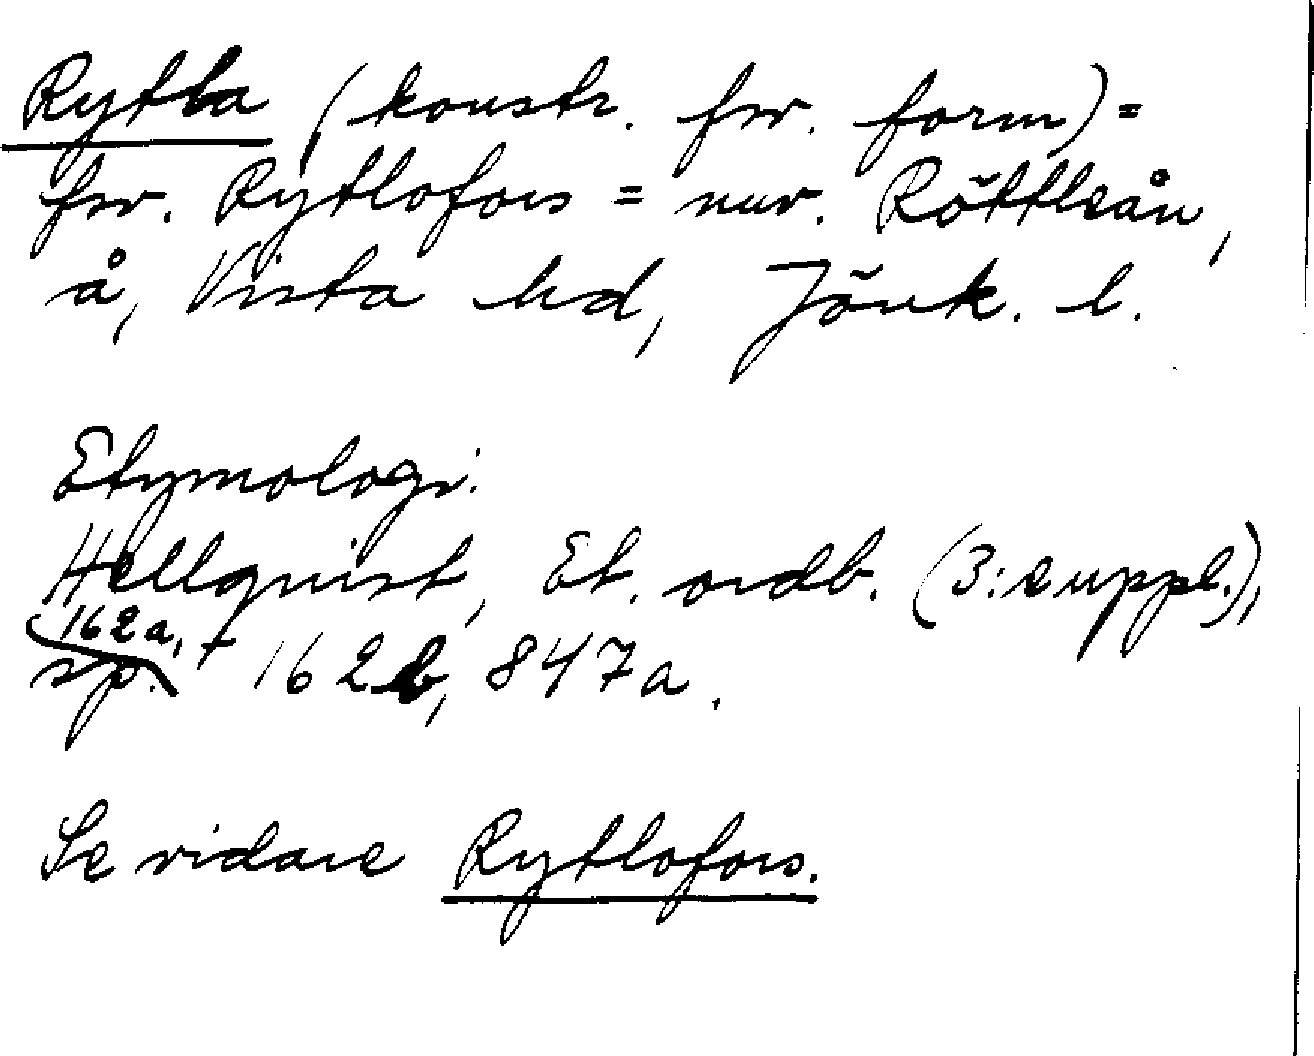 Rytla (konstr. fsv. form) =
fsv. Rytlofors = nuv. Röttleån,
å, Vista hd, Jönk. l.
Etymologi:
Hellquist, Et. ordb. (3: suppl.),
sp. 162a, + 162b, 847a.
Se vidare Rytlofors.